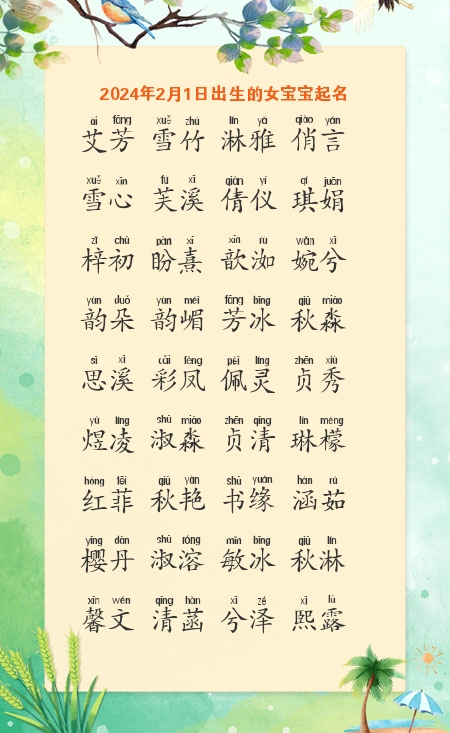 2024年2月1日出生的女宝宝起名
ài fāng xuě zhú lín yǎ qiào yán
艾芳 雪竹 淋雅 俏言
xuě xīn fú xī qiàn yí qí juān
雪心 芙溪 倩仪 琪娟
zǐ chū pàn xī xīn rù wǎn xī
梓初 盼熹 歆洳 婉兮
yùn duǒ yùn mèi fāng bīng qiū miǎo
韵朵 韵嵋 芳冰 秋淼
sī xī cǎi fèng pèi líng zhēn xiù
思溪 彩凤 佩灵 贞秀
yù líng shū miǎo zhēn qīng lín méng
煜凌 淑淼 贞清 琳檬
hóng fēi qiū yàn shū yuán hán rú
红菲 秋艳 书缘 涵茹
yīng dān shū róng mǐn bīng qiū lín
樱丹 淑溶 敏冰 秋淋
xīn wén qīng hàn xī zé xī lù
馨文 清菡 兮泽 熙露